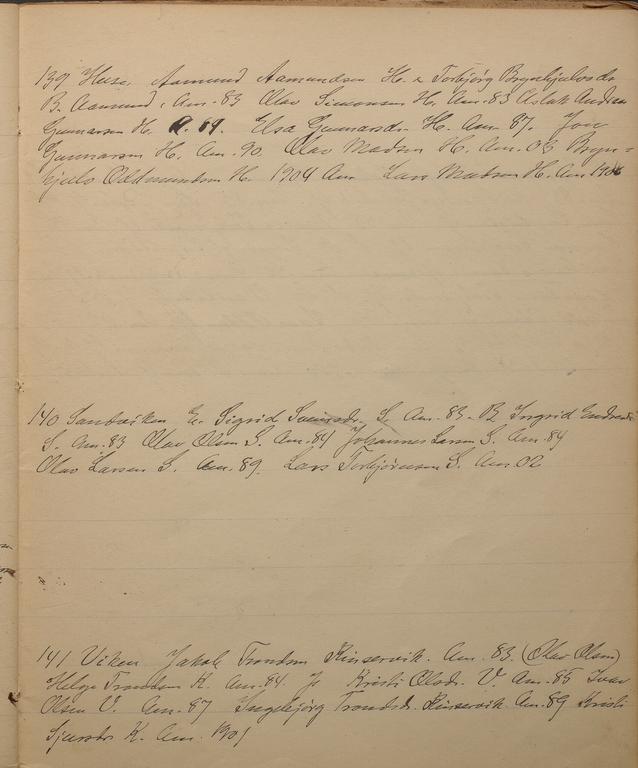 139 Huse. Aamund Aamundsen H. & Torbjørg Brynhjulvsdr
B. Aamund, Am. 83 Olav Simonsen H. Am. 83 Aslak Andreas
Gunnarsen H. A. 69. Elsa Gunnarsdr. H. Am 87. Jon
Gunnarsen H. Am. 90. Olav Madsen H. Am. 03 Bryn=
hjulv Oddmundsen H. 1904 Am Lars Madsen H. Am 1906
140 Sandviken E. Sigrid Sveinsdr. S. Am. 83. B. Ingrid Endresdr
S. Am. 83 Olav Olsen S. Am. 84 Johannes Larsen S. Am. 84
Olav Larsen S. Am. 89. Lars Torbjørnsen S. Am. 02
141 Viken Jakob Trondsen Kinservik. Am. 83. (Olav Olsen)
Helge Trondsen K. Am. 84 Kristi Olsdr. V. Am. 85 Ivar
Olsen V. Am. 87 Ingebjørg Trondsdr. Kinservik. Am. 89 Kristi
Sjursdr K. Am. 1901